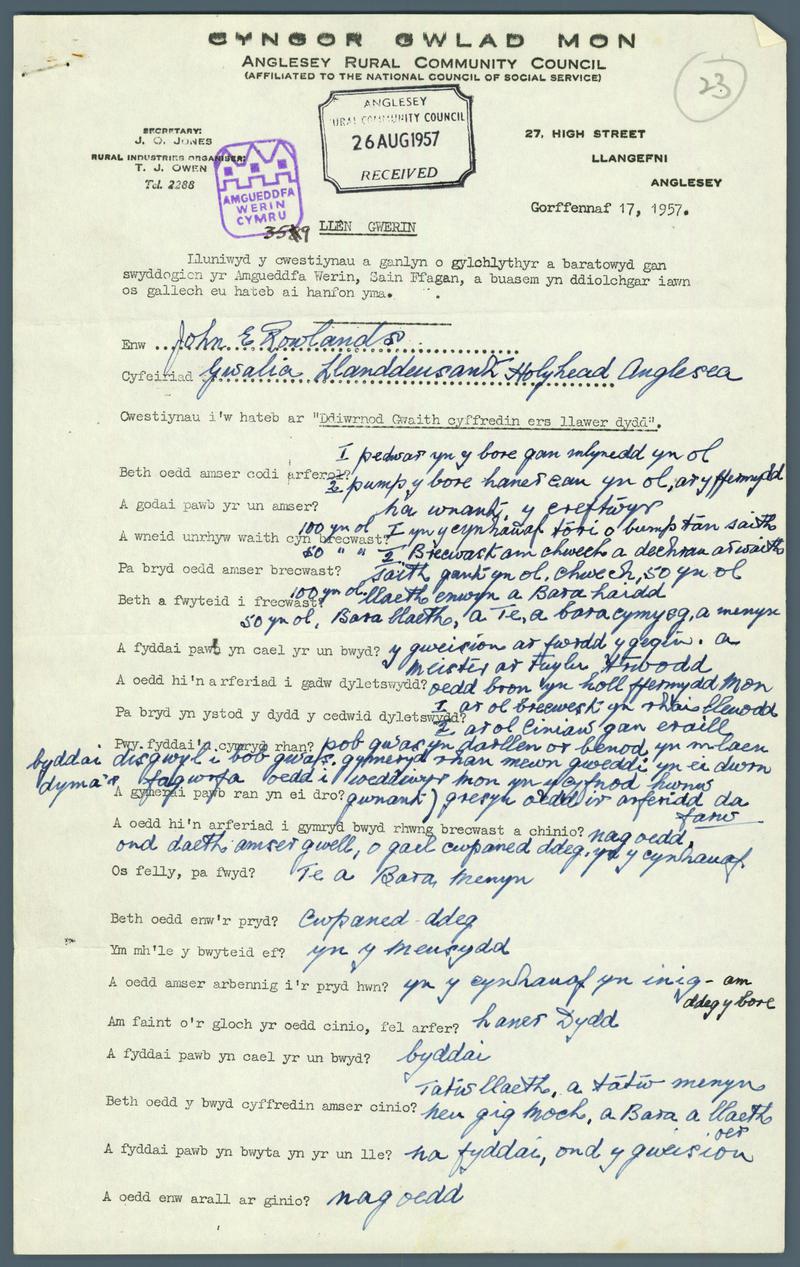 CYNGOR GWLAD MON
ANGLESEY RURAL COMMUNITY COUNCIL
(AFFILIATED TO THE NATIONAL COUNCIL OF SOCIAL SERVICE)
23
SECRETARY:
J. O. JONES
RURAL INDUSTRIES ORGANISER:
T. J. OWEN
Tel. 2288
ANGLESEY
RURAL COMMUNITY COUNCIL
26 AUG 1957
RECEIVED
27, HIGH STREET
LLANGEFNI
ANGLESEY
AMGUEDDFA
WERIN
CYMRU
Gorffennaf 17, 1957.
LLÊN GWERIN
Lluniwyd y cwestiynau a ganlyn o gylchlythyr a baratowyd gan
swyddogion yr Amgueddfa Werin, Sain Ffagan, a buasem yn ddiolchgar iawn
os gallech eu hateb ai hanfon yma.
Enw John E Rowlands
Cyfeiriad Gwalia Llanddeusant Holyhead Anglesea
Cwestiynau i'w hateb ar "Ddiwrnod Gwaith cyffredin ers llawer dydd".
I pedwar yn y bore gan mlynedd yn ol
Beth oedd amser codi arferol? 2 pump y bore haner can yn ol, ar y ffermydd
A godai pawb yr un amser? na wnant, y creftwyr
100 yn ol I yn y cynhauaf tori o bump tan saith
A wneid unrhyw waith cyn brecwast?
50 " " 2 Brecwast am chwech a dechrau ar waith
Pa bryd oedd amser brecwast? Saith gant yn ol, chwech, 50 yn ol
Beth a fwyteid i frecwast? 100 yn ol. llaeth enwyn a Bara haidd
50 yn ol, Bara llaeth, a Te, a bara cymysg, a menyn
A fyddai pawb yn cael yr un bwyd? y gweision ar fwrdd y gegin. a
meister ar Teulu
A oedd hi'n arferiad i gadw dyletswydd? oedd bron yn holl ffermydd Mon
Pa bryd yn ystod y dydd y cedwid dyletswydd? I ar ol brecwest yn rhai lleuodd
2 ar ol Ciniaw gan eraill
Pwy fyddai'n cymryd rhan? pob gwas yn darllen or benod yn mlaen
byddai disgwyl i bob gwas gymeryd rhan mewn gweddi yn ei dwrn
dyma'r fagwrfa oedd i weddiwyr mon yn y cyfnod hwnw
A gymerai pawb ran yn ei dro? gwnant) gresyn oedd i'r arferidd da
farw
A oedd hi'n arferiad i gymryd bwyd rhwng brecwast a chinio? nag oedd,
ond daeth amser gwell, o gael cwpaned ddeg, yn y cynhauaf
Os felly, pa fwyd? Te a Bara Menyn
Beth oedd enw'r pryd? Cwpaned-ddeg
Ym mh'le y bwyteid ef? yn y Meusydd
A oedd amser arbennig i'r pryd hwn? yn y cynhauaf yn inig - am
ddeg y bore
Am faint o'r gloch yr oedd cinio, fel arfer? haner Dydd
A fyddai pawb yn cael yr un bwyd? byddai
Tatw llaeth, a tatw menyn
Beth oedd y bwyd cyffredin amser cinio? neu gig moch, a Bara a llaeth
oer
A fyddai pawb yn bwyta yn yr un lle? na fyddai, ond y gweision
A oedd enw arall ar ginio? nag oedd